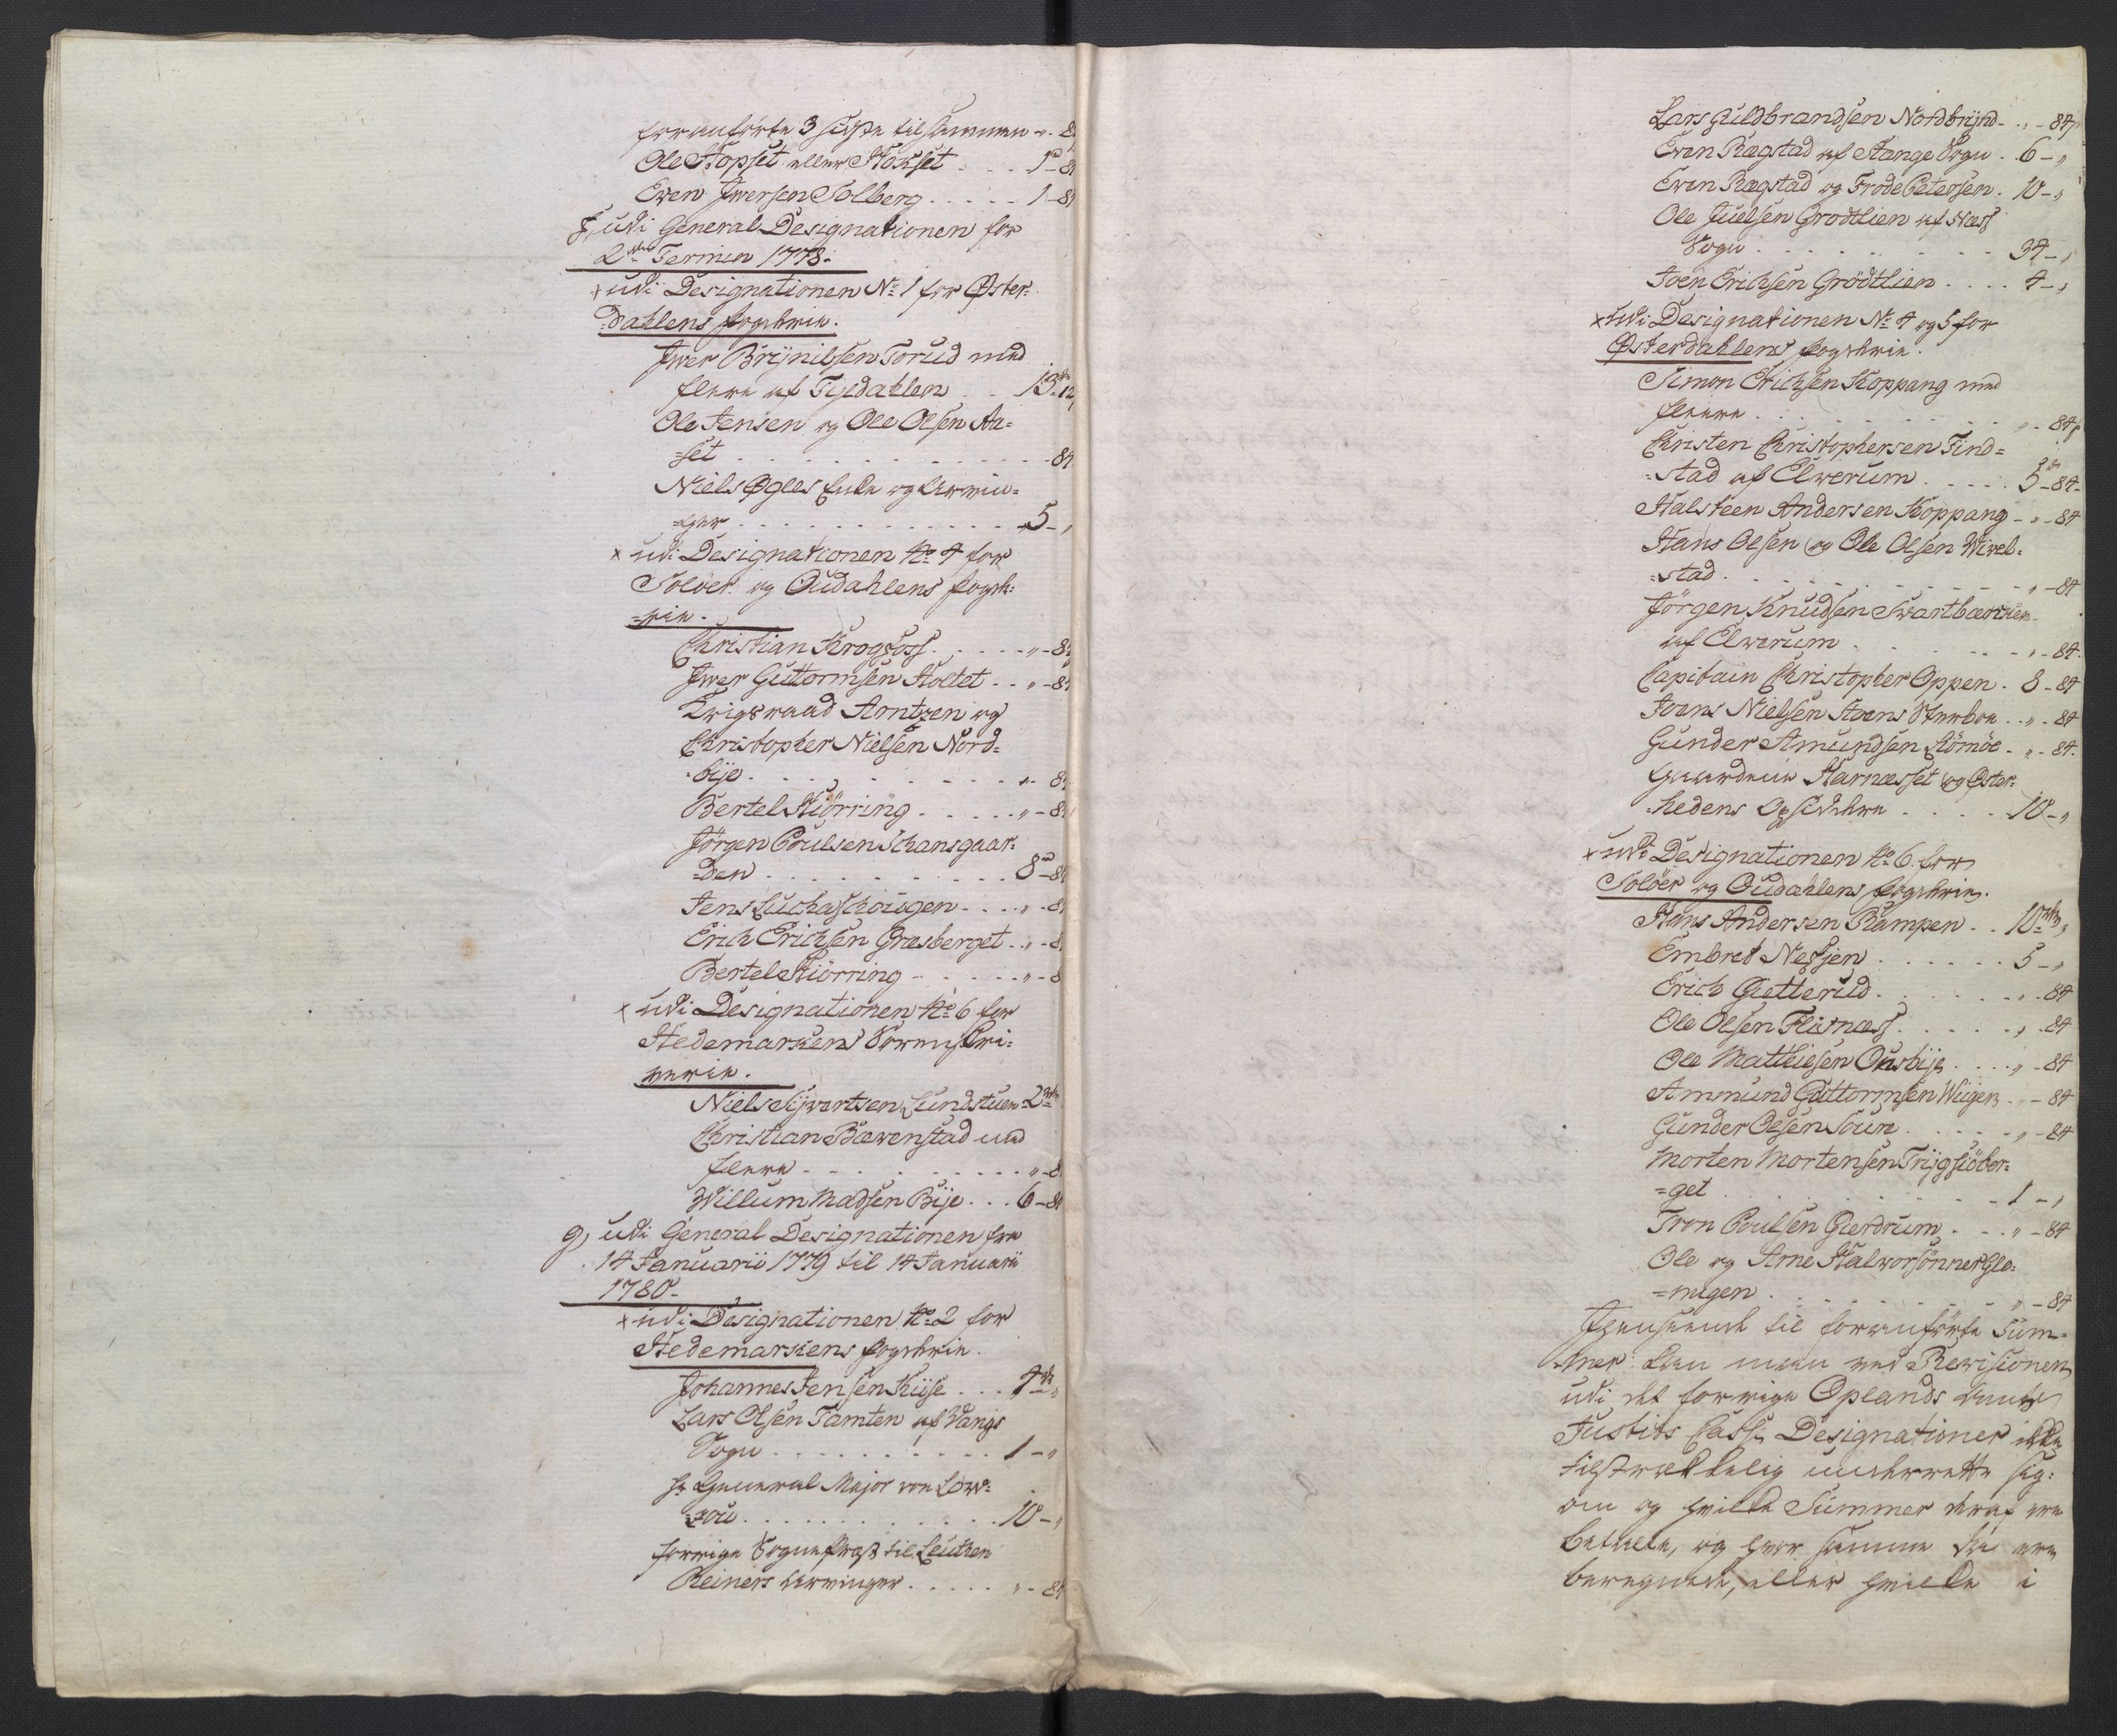 foranførte 3 sidste tilsammen „ - 8
Ole Stopset eller Stokset . . . 1 rd - 8
Even Iversen Solberg . . . . . 1 - 8
f, udi General Designationen for
2den Termin 1778.
x udi Designationen No 1 for Øster-
dahlens fogderie.
Iver Brynilsen Torud med
flere af Tyldahlen . . 13 rd 12
Ole Jensen og Ole Olsen Aa=
=set . . . . . . . . . . . - 84
Niels Ogles Enke og Arvin=
=ger . . . . . . . . . . . 5 - „
x udi Designationen No 4 for
Soloer og Oudahlens fogde=
=rie.
Christian Krogsfoss . . . . . „ - 84
Iver Guttormsen Stoltet . . „ - 84
Krigsraad Arntzen og
Christopher Nielsen Nord=
=bye . . . . . . . . . . . „ - 84
Bertel Kiörring . . . . . „ - 84
Jörgen Poulsen Schansgaar=
=den . . . . . . . . . . 8 rd - 84
Jens Luchaschougen . . . . „ - 8
Erich Erichsen Græsberget . . „ - 8
Bertel Kiörring . . . . . „ - 8
x udi Designationen No 6 for
Hedemarkens Sorenskri=
verie.
Niels Syvertsen Lundstuen 2 rd
Christian Bævenstad med
flere . . . . . . . . . . „ - 8
Willum Madsen Bye . . . 6 - 84
g, udi General Designationen fra
14 Januarii 1779 til 14 Januarii
1780.
x udi Designationen No 2 for
Hedemarkens fogderie.
Johannes Jensen Kiise . . . 4 rd „
Lars Olsen Tamten af Vangs
Sogn . . . . . . . . . . 1 - „
Hr General Major von Löw=
=zou . . . . . . . . . . 10 - „
forrige Sognepræst til Leuthen
Reiners Arvinger . . . . . „ - 84
Lars Guldbrandsen Nordbryhd - „ - 84
Even Rægstad af Stange Sogn . 6 - „
Even Rægstad og Frode Petersen . 10 - „
Ole Juelsen Grodtlien af Næss
Sogn . . . . . . . . . . 34 - „
Joen Erichsen Grödtlien . . . . 4 - „
x udi Designationen No 4 og 5 for
Østerdahlens fogderie.
Simon Erichsen Koppang med
fleere . . . . . . . . . . „ - 84
Christen Christophersen Find=
=stad af Elverum . . . . . 5 rd - 84
Halsteen Andersen Koppang - „ - 84
Hans Olsen og Ole Olsen Wirel=
=stad . . . . . . . . . . „ - 84
Jörgen Knudsen Svartbækken
af Elverum . . . . . . . „ - 84
Capitain Christopher Oppen . 8 - 84
Joens Nielsen Stoens Sterboe . . „ - 84
Gunder Amundsen Römöe . „ - 84
Gaardene Harnæsset og Øster=
=hedens Opsiddere . . . . 10 - „
x udi Designationen No 6 for
Solöer og Oudahlens fogderie.
Hans Andersen Kampen . . 10 rd „
Embret Nessen . . . . . . 5 - „
Erich Gietterud . . . . . . „ - 84
Ole Olsen Flisnæss . . . . . „ - 84
Ole Mathiesen Ousbye . . . . „ - 84
Ammund Guttormsen Wiiger . . - 84
Gunder Olsen Soure . . . . . „ - 84
Morten Mortensen Trygsiöber=
=get . . . . . . . . . . 1 - „
Tron Poulsen Gierdrum . . . „ - 84
Ole og Arne Halvorsönner Glo=
=migen . . . . . . . . . „ - 84
Igenseende til foranförte Sum-
mer kan man ved Revisionen
udi det forrige Oplands Amts
Justits Cassa Designationer ikke
tilstrækkelig underrette sig:
om og hvilke Summer deraf ere
betalte, og hvor samme da ere
beregnede, eller hvilke i